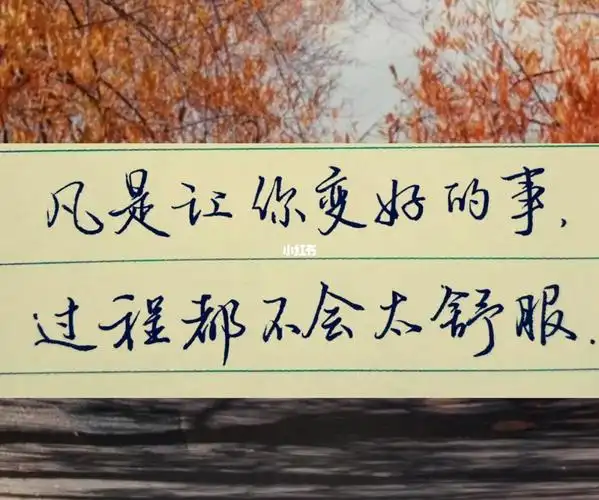 凡是让你变好的事，
小红书
过程都不会太舒服.